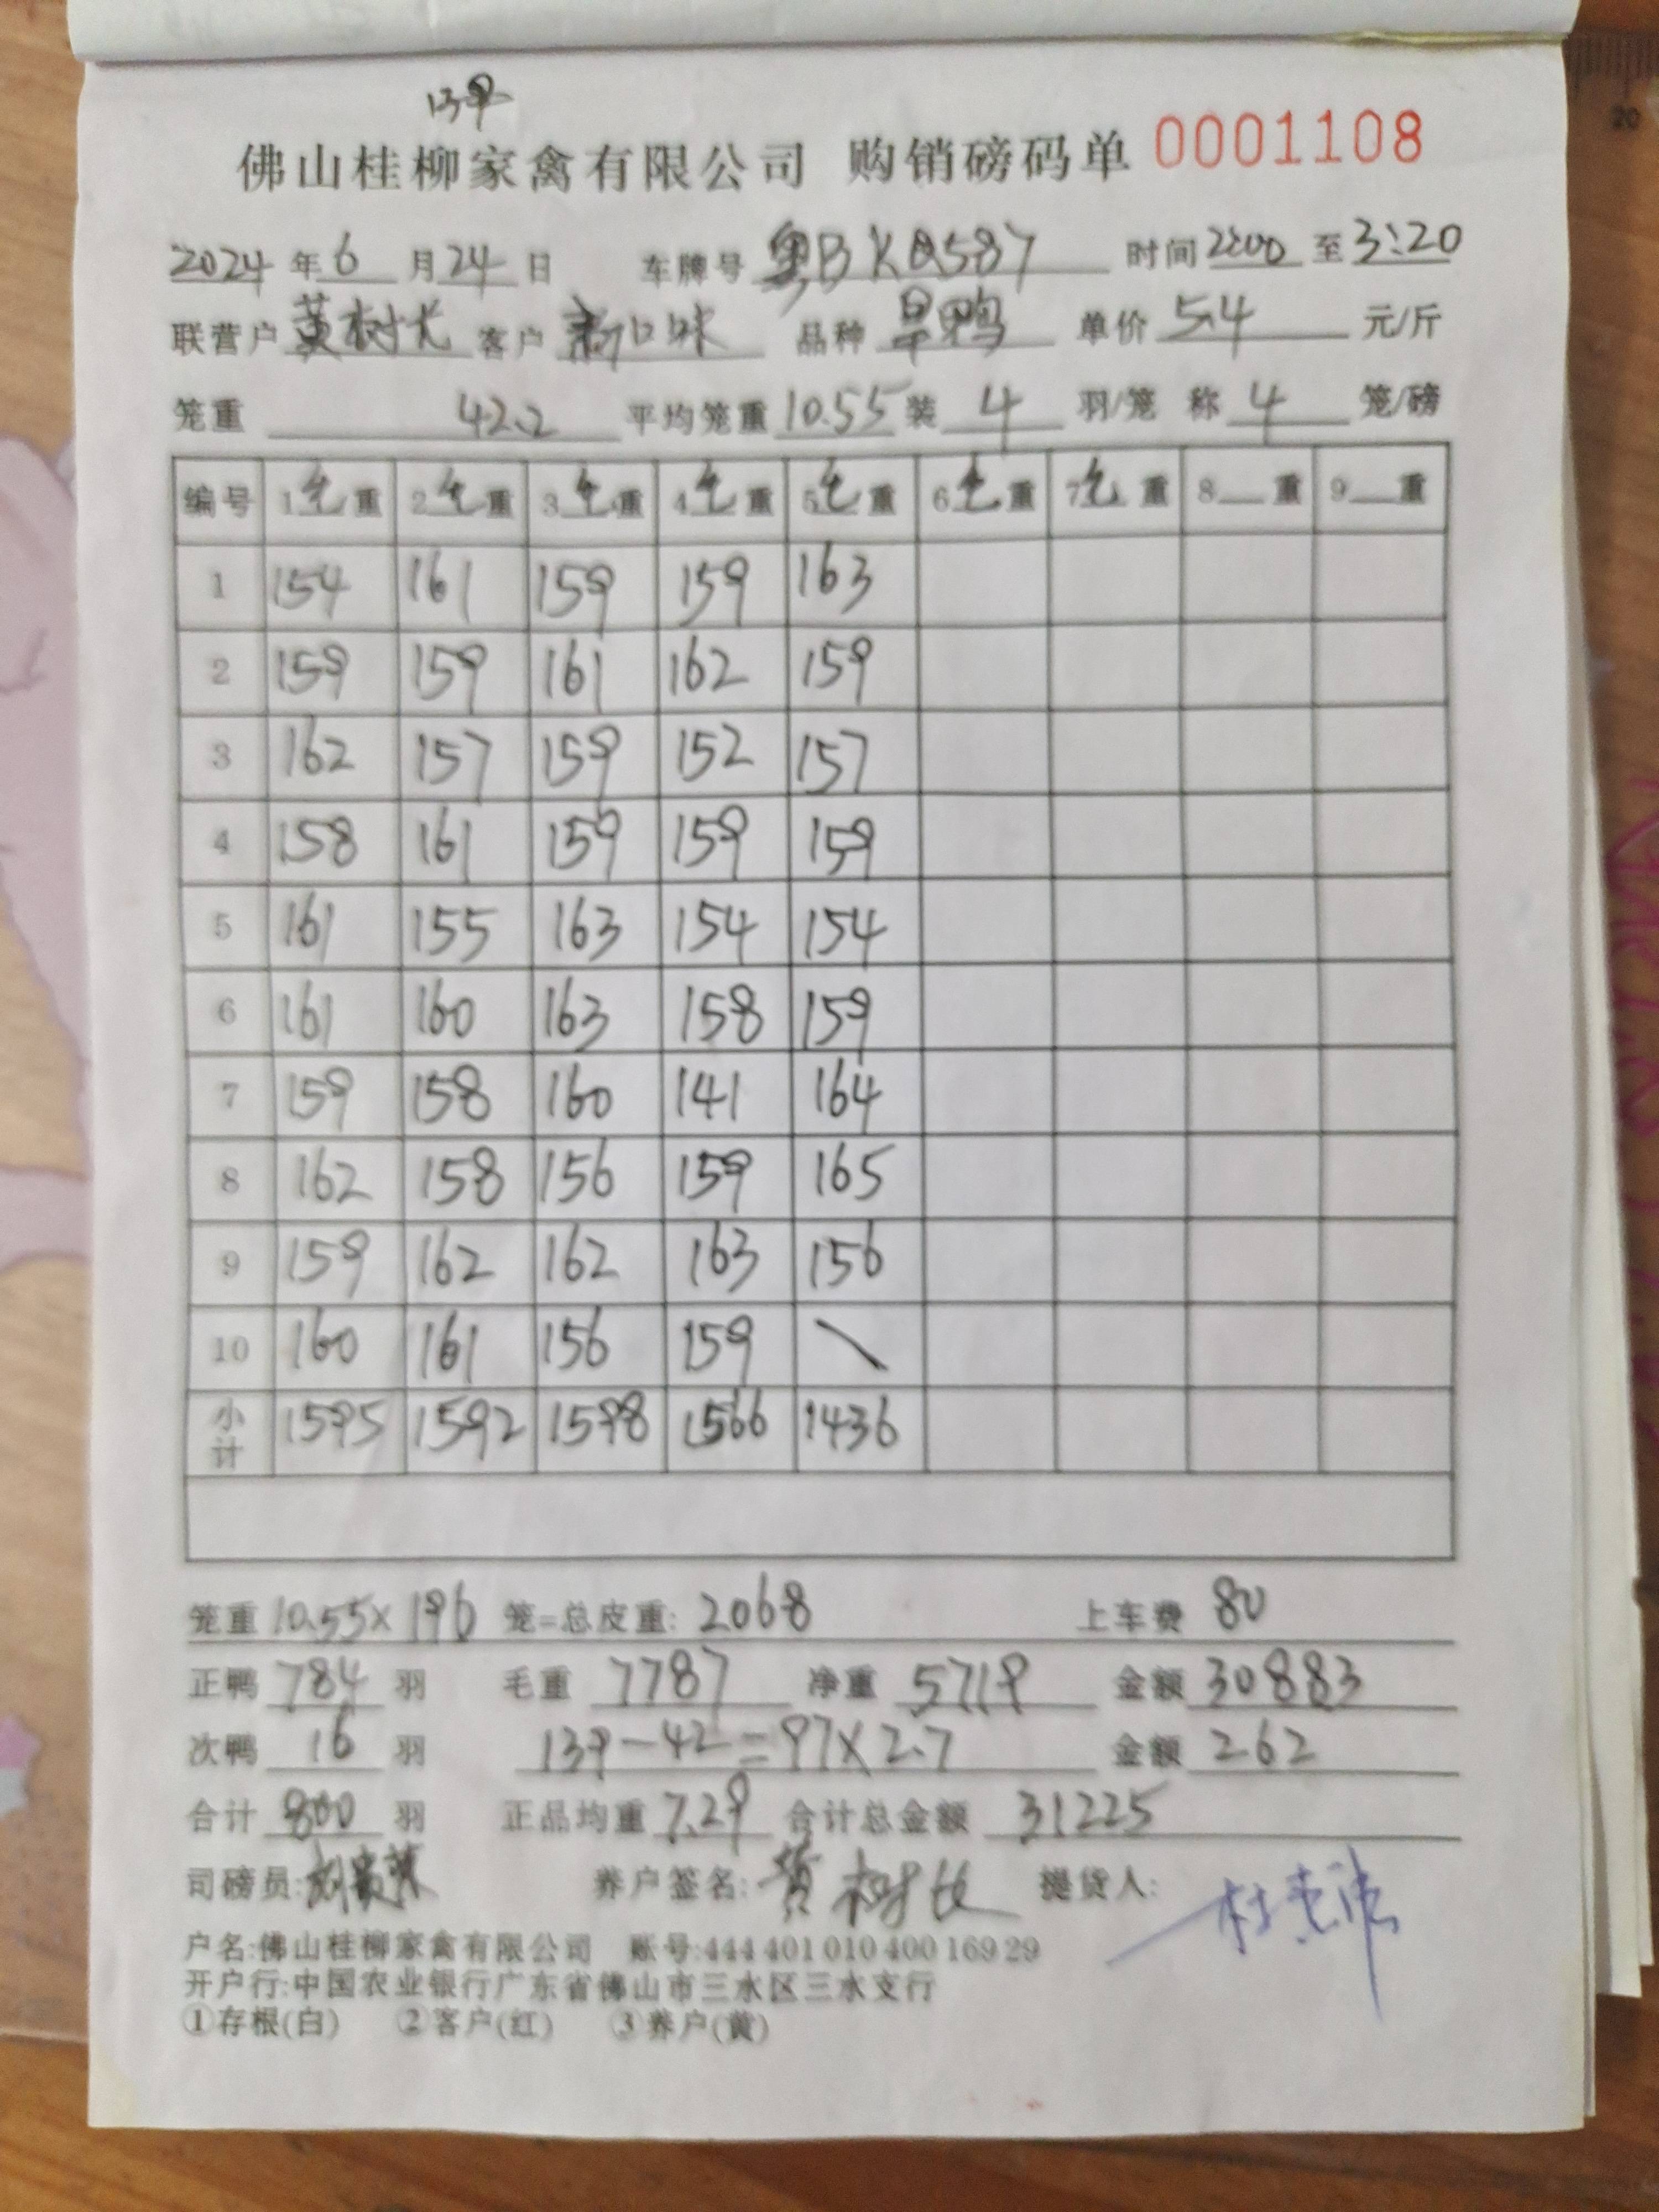 139
佛山桂柳家禽有限公司 购销磅码单 0001108
2024 年 6 月 24 日 车牌号 粤BKQ587 时间 2:00 至 3:20
联营户 黄树长 客户 新口味 品种 旱鸭 单价 5.4 元/斤
笼重 42.2 平均笼重 10.55 装 4 羽/笼 称 4 笼/磅
编号 1毛重 2毛重 3毛重 4毛重 5毛重 6毛重 7毛重 8 重 9 重
1 154 161 159 159 163
2 159 159 161 162 159
3 162 157 159 152 157
4 158 161 159 159 159
5 161 155 163 154 154
6 161 160 163 158 159
7 159 158 160 141 164
8 162 158 156 159 165
9 159 162 162 163 156
10 160 161 156 159 \
小计 1595 1592 1598 1566 1436
笼重 10.55× 196 笼=总皮重: 2068 上车费 80
正鸭 784 羽 毛重 7787 净重 5719 金额 30883
次鸭 16 羽 139-42=97×2.7 金额 262
合计 800 羽 正品均重 7.29 合计总金额 31225
司磅员: 养户签名: 黄树长 提货人:
户名:佛山桂柳家禽有限公司 账号:444 401 010 400 169 29
开户行:中国农业银行广东省佛山市三水区三水支行
①存根(白) ②客户(红) ③养户(黄)